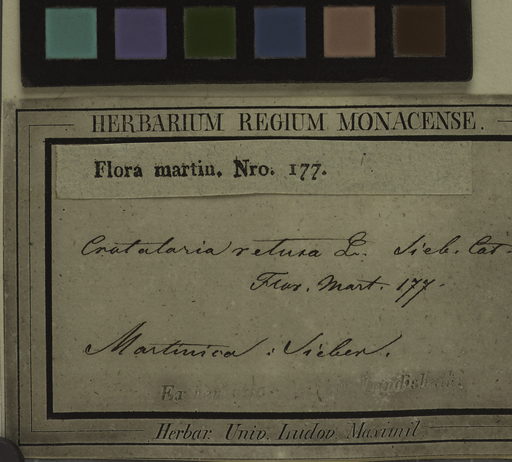 HERBARIUM REGIUM MONACENSE.
Flora martin. Nro. 177.
Crotalaria retusa L. Sieb. Cat.
Flor. Mart. 177.
Martinica : Sieber.
Ex
Herbar. Univ. Ludov. Maximil